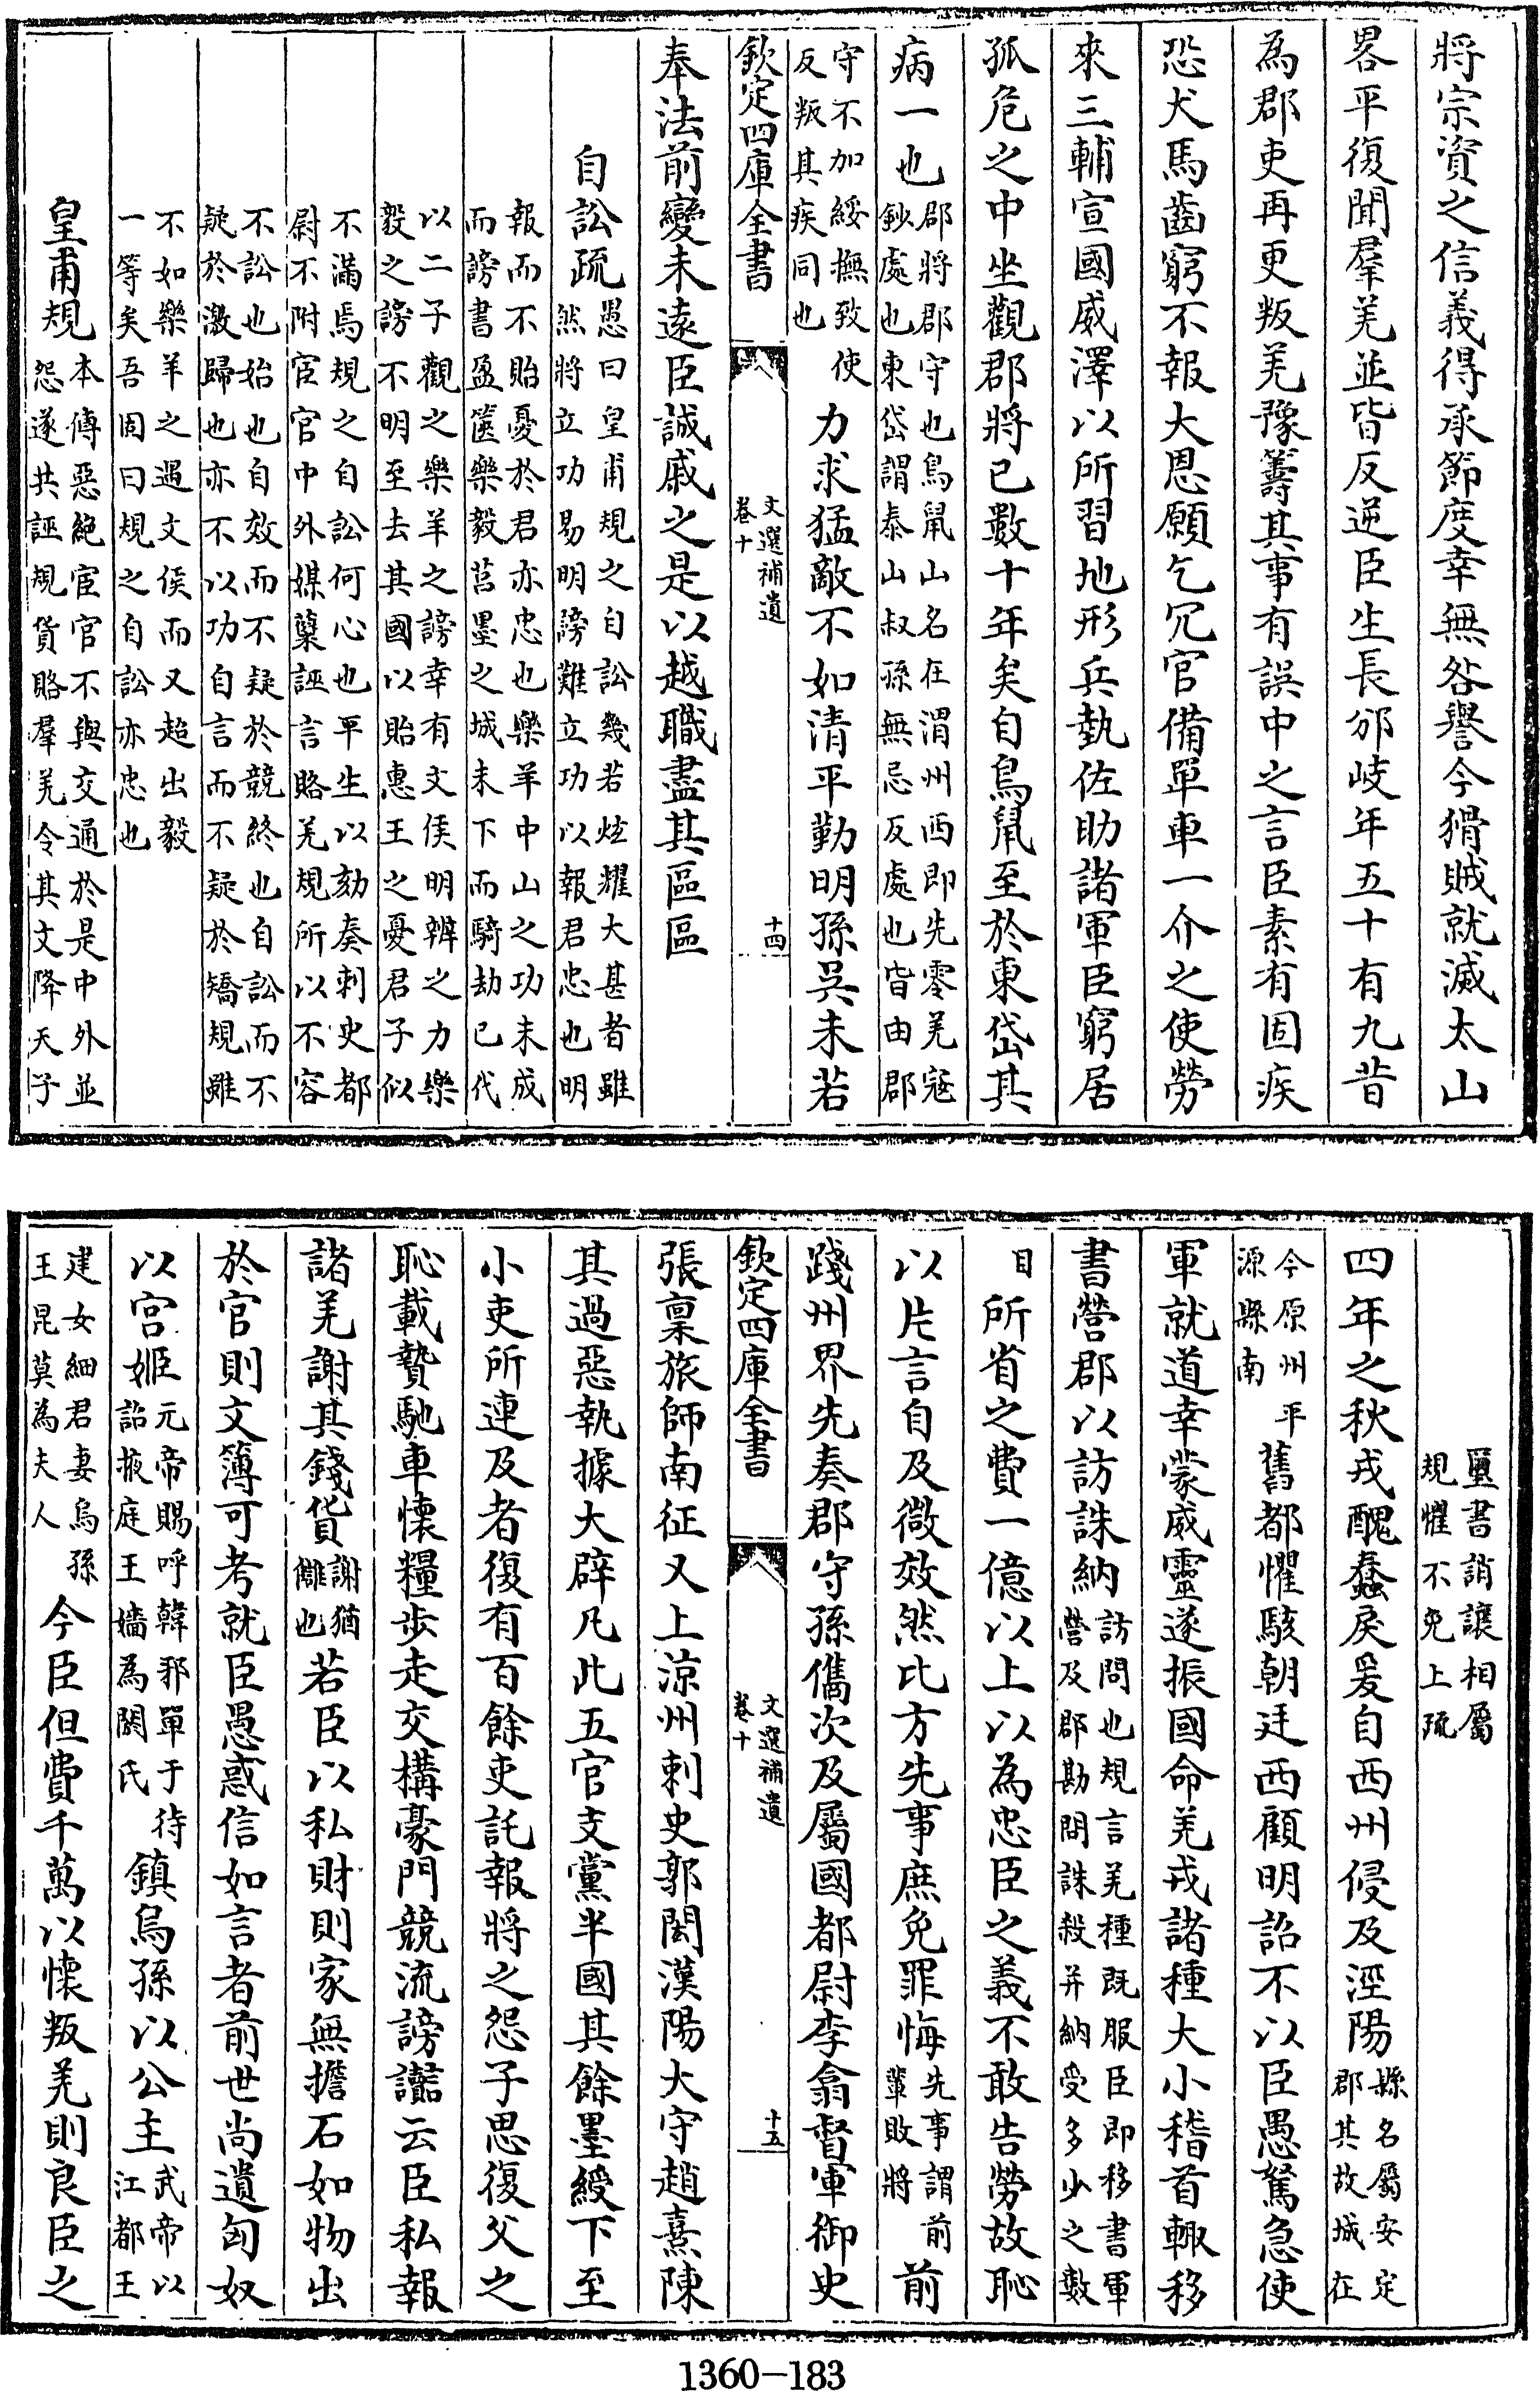 將宗資之信義得承節度幸無咎譽今猾賊就滅太山
畧平復聞羣羌並皆反逆臣生長邠岐年五十有九昔
為郡吏再更叛羌豫籌其事有誤中之言臣素有固疾
恐犬馬齒窮不報大恩願乞冗官備單車一介之使勞
來三輔宣國威澤以所習地形兵埶佐助諸軍臣窮居
孤危之中坐觀郡將已數十年矣自鳥鼠至於東岱其
病一也郡將郡守也鳥鼠山名在渭州西即先零羌寇鈔處也東岱謂泰山叔孫無忌反處也皆由郡
守不加綏撫致使反叛其疾同也力求猛敵不如清平勤明孫吳未若
欽定四庫全書
文選補遺
卷十
十四
奉法前變未遠臣誠戚之是以越職盡其區區
自訟疏愚曰皇甫規之自訟幾若炫耀大甚者雖然將立功易明謗難立功以報君忠也明
報而不貽憂於君亦忠也樂羊中山之功未成而謗書盈篋樂毅莒墨之城未下而騎劫已代
以二子觀之樂羊之謗幸有文侯明辨之力樂毅之謗不明至去其國以貽惠王之憂君子似
不滿焉規之自訟何心也平生以劾奏刺史都尉不附宦官中外媒糵誣言賂羌規所以不容
不訟也始也自效而不疑於競終也自訟而不疑於激歸也亦不以功自言而不疑於矯規雖
不如樂羊之遇文侯而又超出毅一等矣吾固曰規之自訟亦忠也
皇甫規本傳惡絕宦官不與交通於是中外並怨遂共誣規貨賂羣羌令其文降天子
璽書誚讓相屬規懼不免上疏
四年之秋戎醜蠢戾爰自西州侵及涇陽縣名屬安定郡其故城在
今原州平源縣南舊都懼駭朝廷西顧明詔不以臣愚駑急使
軍就道幸蒙威靈遂振國命羌戎諸種大小稽首輙移
書營郡以訪誅納訪問也規言羌種既服臣即移書軍營及郡勘問誅殺并納受多少之數
目所省之費一億以上以為忠臣之義不敢告勞故恥
以片言自及微效然比方先事庶免罪悔先事謂前輩敗將前
踐州界先奏郡守孫儁次及屬國都尉李翕督軍御史
欽定四庫全書
文選補遺
卷十
十五
張稟旅師南征又上涼州刺史郭閎漢陽大守趙熹陳
其過惡執據大辟凡此五官支黨半國其餘墨綬下至
小吏所連及者復有百餘吏託報將之怨子思復父之
恥載贄馳車懷糧步走交構豪門競流謗讟云臣私報
諸羌謝其錢貨謝猶讎也若臣以私財則家無擔石如物出
於官則文簿可考就臣愚惑信如言者前世尚遺匈奴
以宮姬元帝賜呼韓邪單于待詔掖庭王嬙為閼氏鎮烏孫以公主武帝以江都王
建女細君妻烏孫王昆莫為夫人今臣但費千萬以懷叛羌則良臣之
1360-183